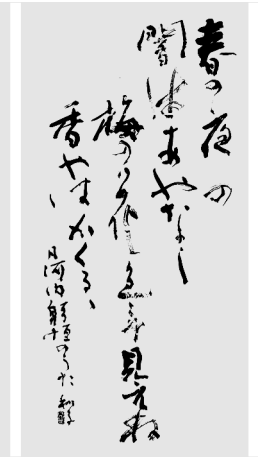 春の夜の
闇はあやなし
梅の花色こそ見えね
香やはかくるゝ
凡河内躬恒のうた